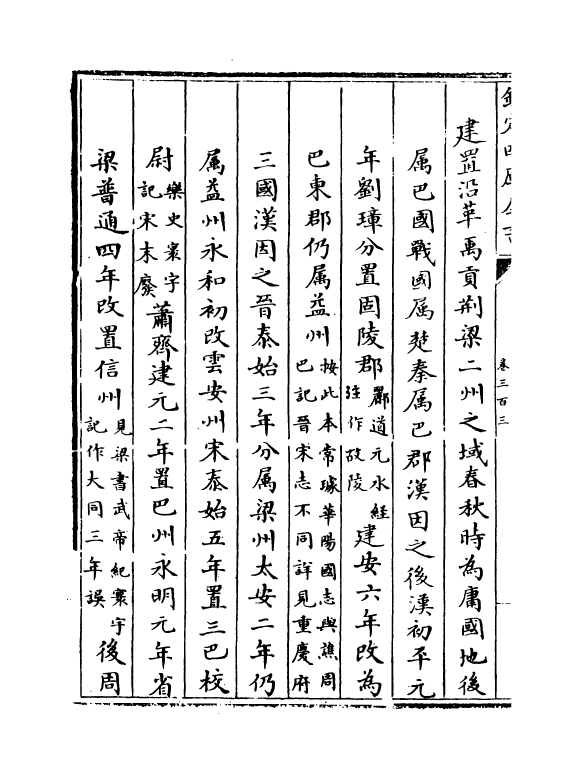 欽定四庫全書
卷三百三
建置沿革禹貢荆梁二州之域春秋時為庸國地後
属巴國戰國属楚秦属巴郡漢因之後漢初平元
年劉璋分置固陵郡酈道元水經注作故陵建安六年改為
巴東郡仍属益州按此本常璩華陽國志與譙周巴記晉宋志不同詳見重慶府
三國漢因之晉泰始三年分属梁州太安二年仍
属益州永和初改雲安州宋泰始五年置三巴校
尉樂史寰宇記宋末廢蕭齊建元二年置巴州永明元年省
梁普通四年改置信州見梁書武帝紀寰宇記作大同三年誤後周